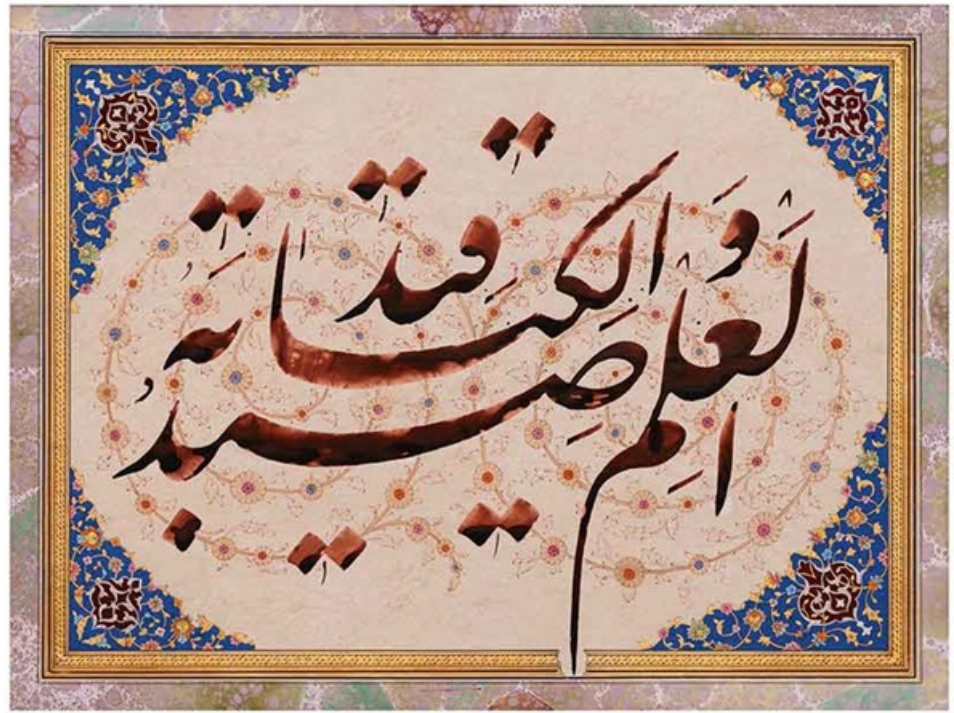 العلم صيد و الكتابة قيد